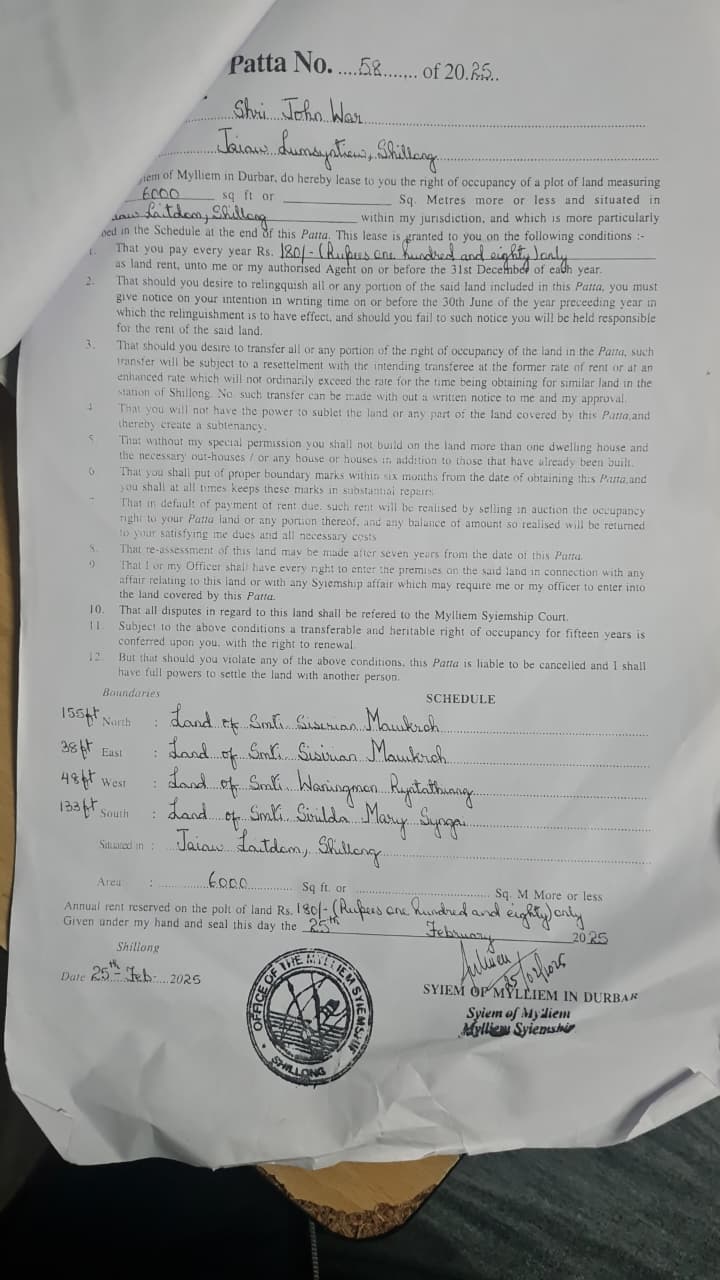 Patta No. ....58....... of 2025..
Shri John War
Jaiaw Lumsyntiew, Shillong
iem of Mylliem in Durbar, do hereby lease to you the right of occupancy of a plot of land measuring
6000 sq ft or ____________ Sq. Metres more or less and situated in
Laitdom, Shillong within my jurisdiction, and which is more particularly
bed in the Schedule at the end of this Patta. This lease is granted to you on the following conditions :-
1. That you pay every year Rs. 180/- (Rupees one hundred and eighty) only
as land rent, unto me or my authorised Agent on or before the 31st December of each year.
2. That should you desire to relingquish all or any portion of the said land included in this Patta, you must
give notice on your intention in writing time on or before the 30th June of the year preceeding year in
which the relinguishment is to have effect, and should you fail to such notice you will be held responsible
for the rent of the said land.
3. That should you desire to transfer all or any portion of the right of occupancy of the land in the Patta, such
transfer will be subject to a resettelment with the intending transferee at the former rate of rent or at an
enhanced rate which will not ordinarily exceed the rate for the time being obtaining for similar land in the
station of Shillong. No such transfer can be made with out a written notice to me and my approval.
4 That you will not have the power to sublet the land or any part of the land covered by this Patta,and
thereby create a subtenancy.
5 That without my special permission you shall not build on the land more than one dwelling house and
the necessary out-houses / or any house or houses in addition to those that have already been built.
6 That you shall put of proper boundary marks within six months from the date of obtaining this Patta,and
you shall at all times keeps these marks in substantial repairs
7 That in default of payment of rent due, such rent will be realised by selling in auction the occupancy
right to your Patta land or any portion thereof, and any balance of amount so realised will be returned
to your satisfying me dues and all necessary costs
8. That re-assessment of this land may be made after seven years from the date of this Patta.
9 That I or my Officer shall have every right to enter the premises on the said land in connection with any
affair relating to this land or with any Syiemship affair which may require me or my officer to enter into
the land covered by this Patta.
10. That all disputes in regard to this land shall be refered to the Mylliem Syiemship Court.
11. Subject to the above conditions a transferable and heritable right of occupancy for fifteen years is
conferred upon you, with the right to renewal
12. But that should you violate any of the above conditions, this Patta is liable to be cancelled and I shall
have full powers to settle the land with another person.
Boundaries SCHEDULE
155ft North : Land of Smti Siserian Mawkroh
38ft East : Land of Smti Sisirian Mawkroh
48ft West : Land of Smti Waningmon Ryntathiang
133ft South : Land of Smti Sirilda Mary Syngai
Situated in : Jaiaw Laitdom, Shillong
Area : 6000 Sq ft. or .............. Sq. M More or less
Annual rent reserved on the polt of land Rs. 180/- (Rupees one hundred and eighty) only
Given under my hand and seal this day the 25th February 2025
Shillong
Date 25th Feb 2025
25/02/2025
OFFICE OF THE MYLLIEM SYIEMSHIP
SHILLONG
SYIEM OF MYLLIEM IN DURBAR
Syiem of Mylliem
Mylliem Syiemship